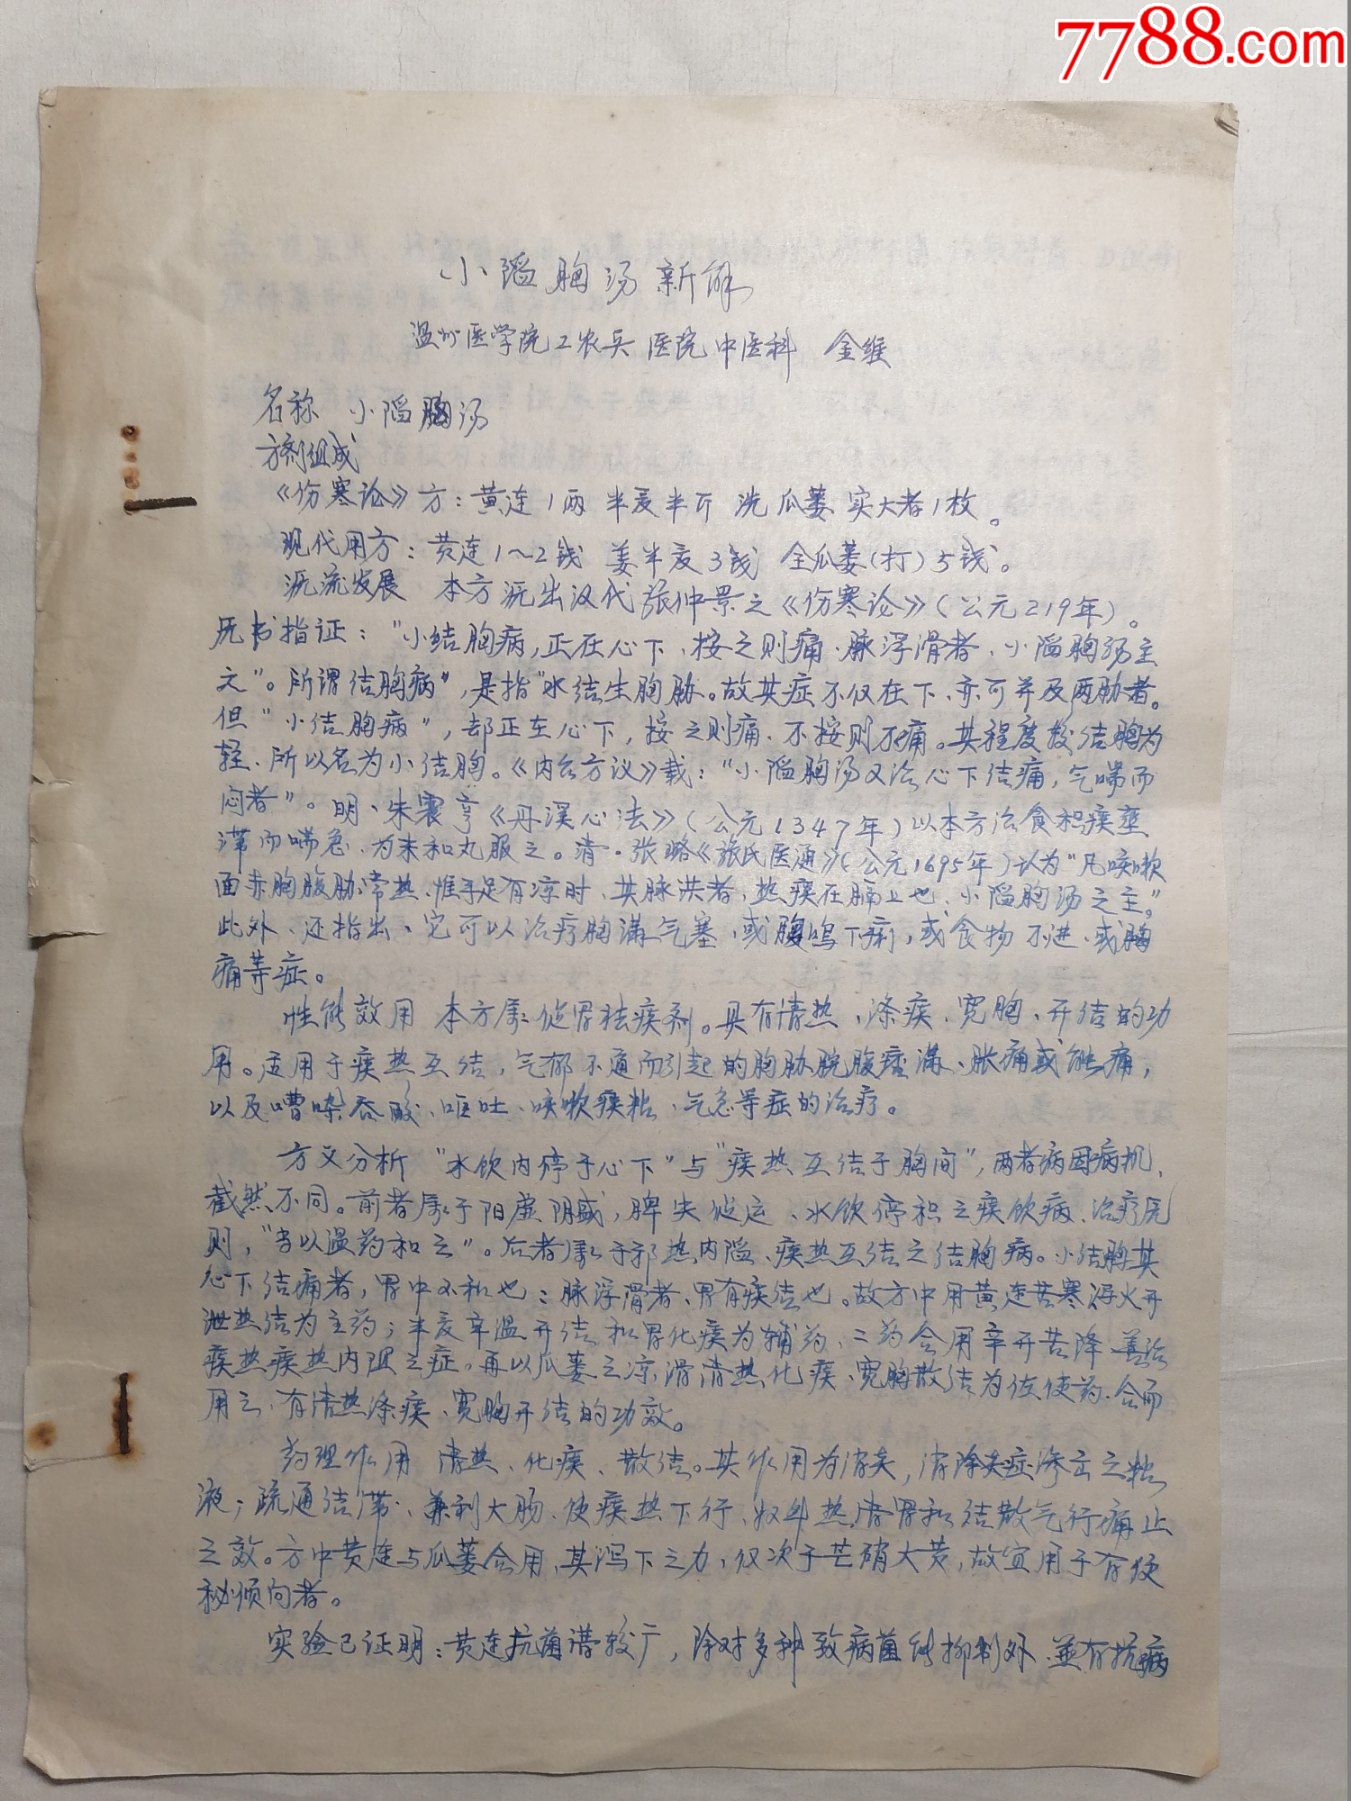 7788.com
小陷胸汤新解
温州医学院工农兵医院中医科 金维
名称 小陷胸汤
方剂组成
《伤寒论》方：黄连1两 半夏半斤 洗 瓜蒌实大者1枚。
现代用方：黄连1～2钱 姜半夏3钱 全瓜蒌(打)5钱。
沅流发展 本方沅出汉代张仲景之《伤寒论》(公元219年)。
原书指证："小结胸病,正在心下、按之则痛、脉浮滑者、小陷胸汤主
之"。所谓结胸病"，是指"水结生胸胁。故其症不仅在下、亦可并及两胁者。
但"小结胸病"，却正在心下，按之则痛、不按则不痛。其程度较结胸为
轻、所以名为小结胸。《内台方议》载："小陷胸汤又治心下结痛，气喘而
闷者"。明、朱震亨《丹溪心法》(公元1347年)以本方治食积痰壅
滞而喘急、为末和丸服之。清·张璐《张氏医通》(公元1695年)认为"凡咳嗽
面赤胸腹胁常热、惟手足有凉时、其脉洪者，热痰在膈上也、小陷胸汤之主。"
此外、还指出、它可以治疗胸满气塞、或腹鸣下痢，或食物不进、或胸
痛等症。
性能效用 本方属健胃祛痰剂。具有清热、涤痰、宽胸、开结的功
用。适用于痰热互结，气郁不通而引起的胸胁脘腹痞满、胀痛或触痛，
以及嘈杂吞酸、呕吐、咳嗽痰粘、气急等症的治疗。
方义分析 "水饮内停于心下"与"痰热互结于胸间"，两者病因病机，
截然不同。前者属于阳虚阴盛，脾失健运、水饮停积之痰饮病、治疗原
则，"当以温药和之"。后者属于邪热内陷、痰热互结之结胸病。小结胸其
心下结痛者，胃中不和也；脉浮滑者、胃有痰结也。故方中用黄连苦寒泻火开
泄热结为主药；半夏辛温开结和胃化痰为辅药、二药合用辛开苦降 善治
痰热痰热内阻之症。再以瓜蒌之凉滑清热化痰、宽胸散结为佐使药、合而
用之、有清热涤痰、宽胸开结的功效。
药理作用 清热、化痰、散结。其作用为消炎，消除炎症渗出之粘
液；疏通结滞、兼利大肠、使痰热下行、收到热清胃和结散气行痛止
之效。方中黄连与瓜蒌合用，其泻下之力，仅次于芒硝大黄，故宜用于有便
秘倾向者。
实验已证明：黄连抗菌谱较广，除对多种致病菌能抑制外、並有抗病